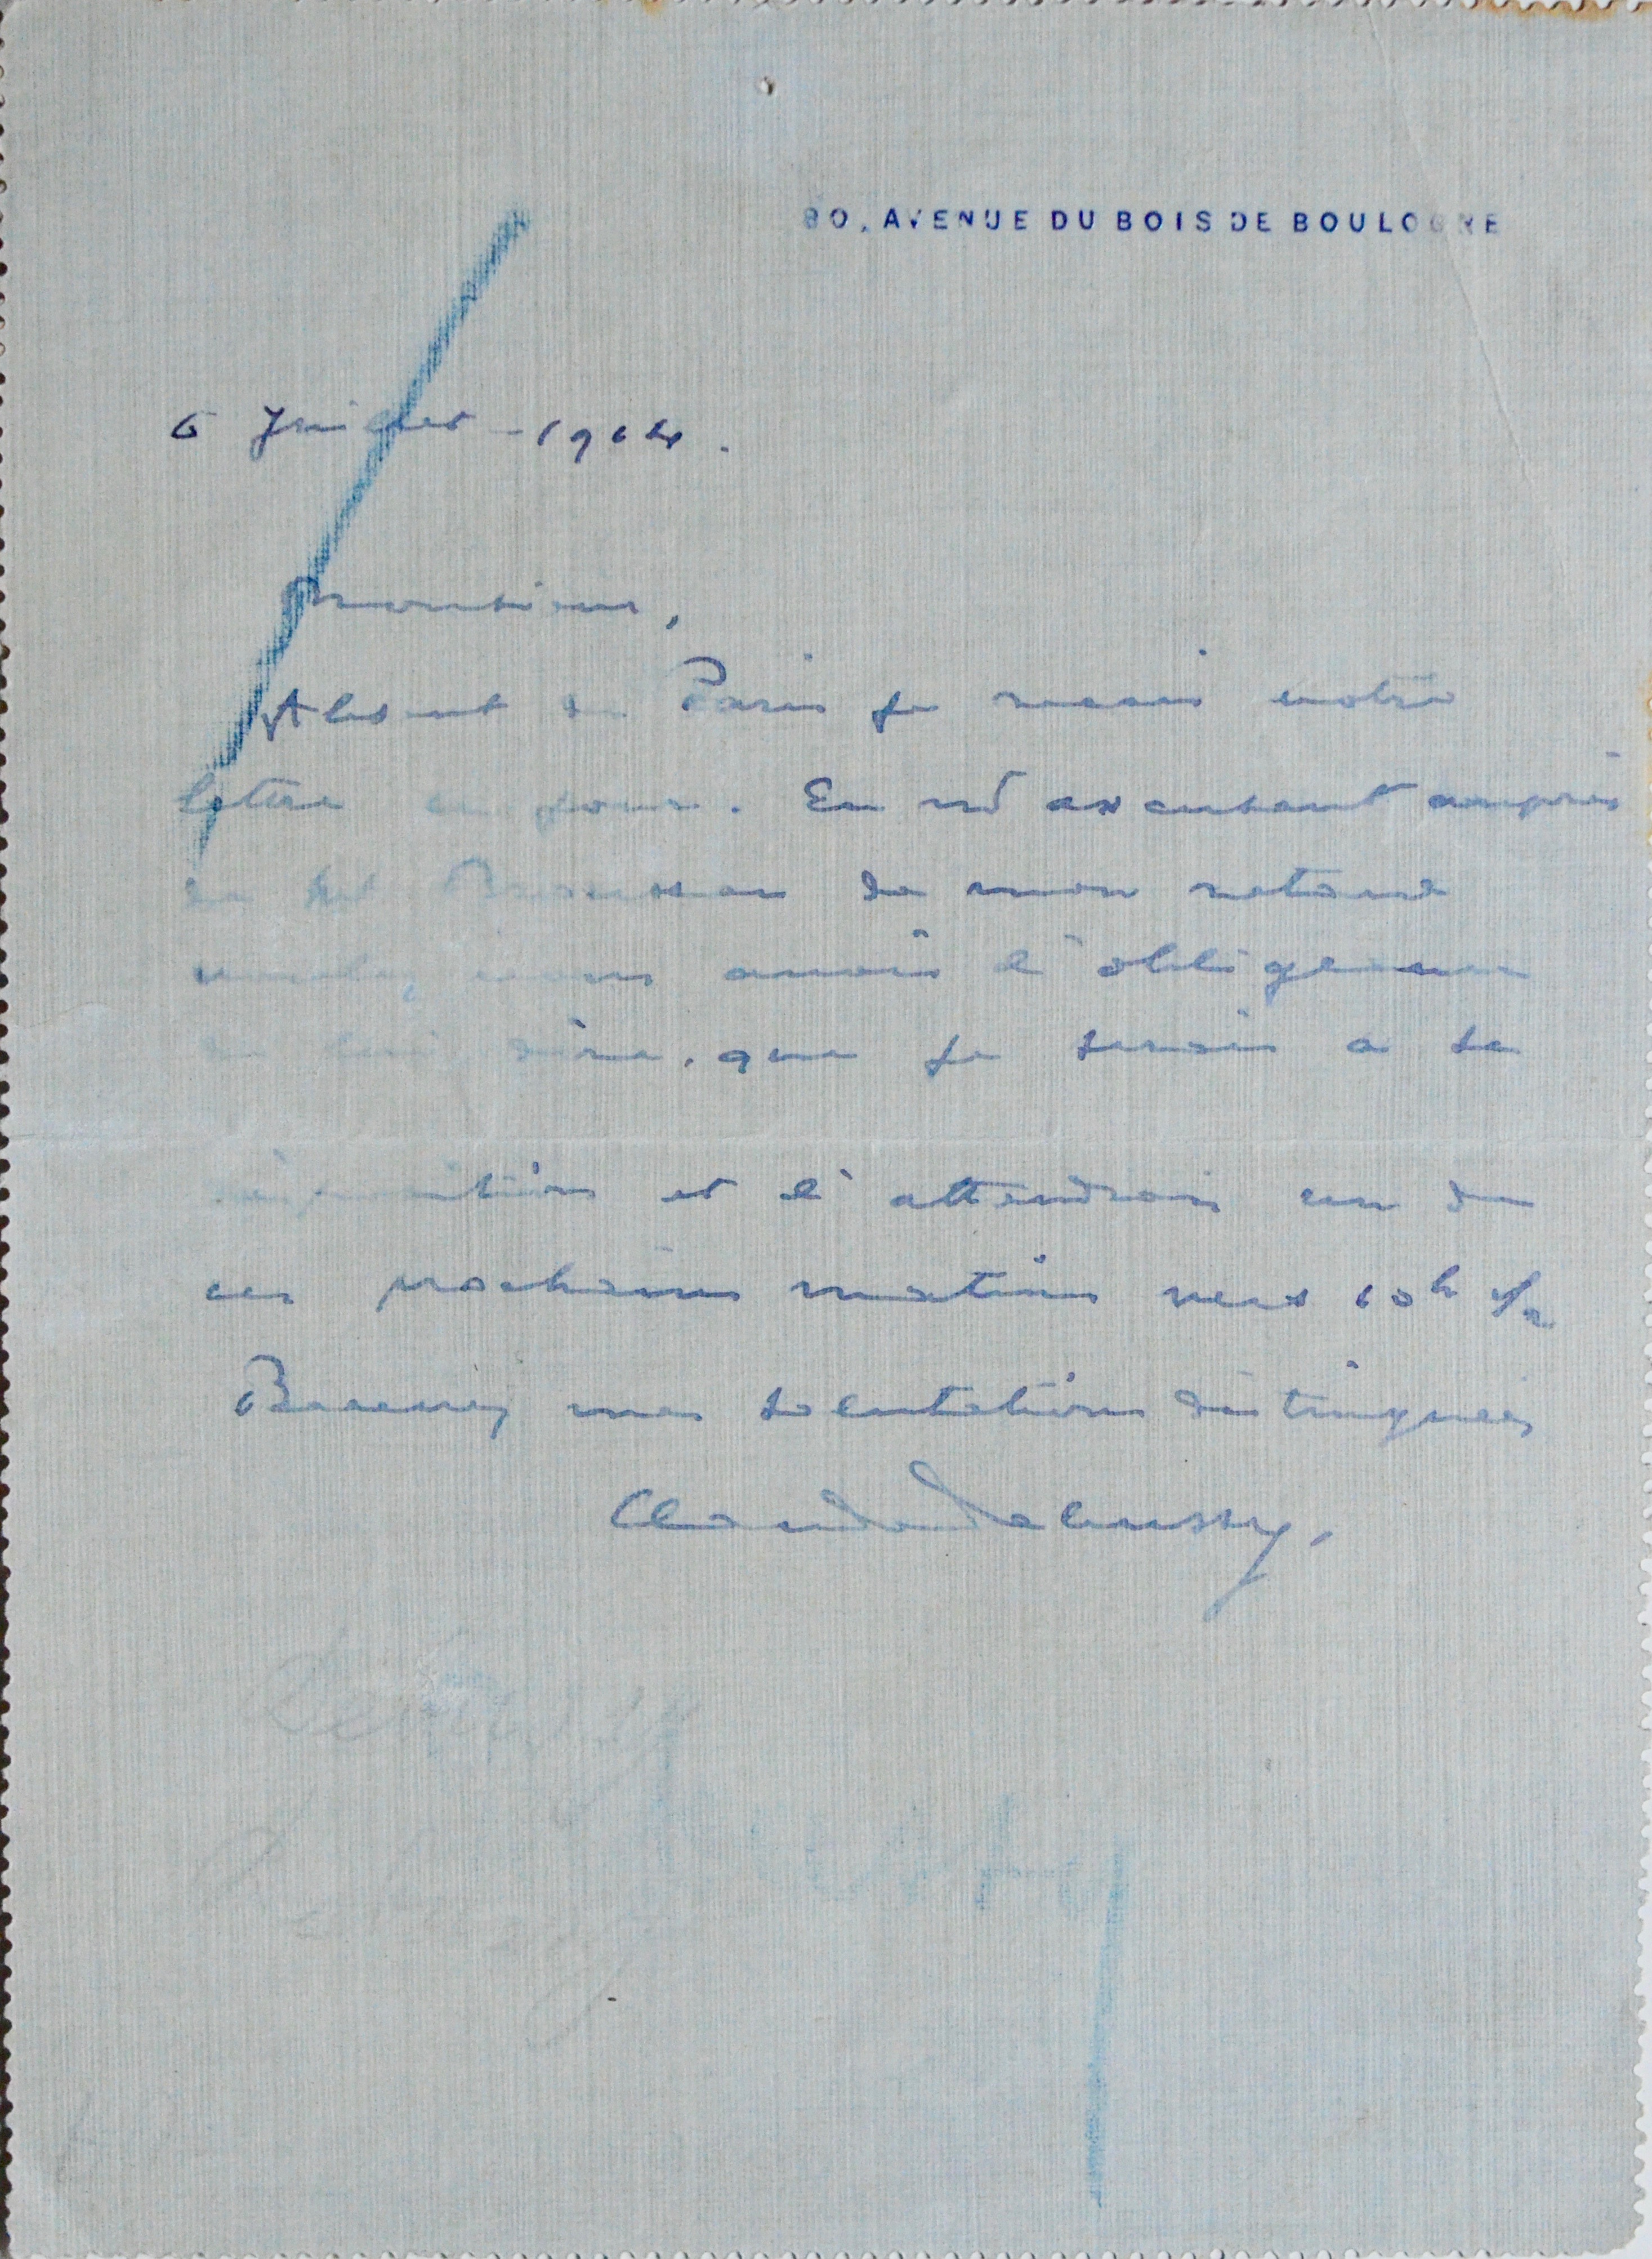 80, AVENUE DU BOIS DE BOULOGNE
6 Juillet -1914.
Monsieur,
Absent de Paris je reçois votre
lettre ce jour. En m'excusant auprès
de de mon retard
voulez vous avoir l'obligeance
de lui dire, que je serais à sa
disposition et l'attendrais un de
ces prochains matins vers 10h 1/2
Recevez mes salutations distinguées
Claude Debussy.
Debussy